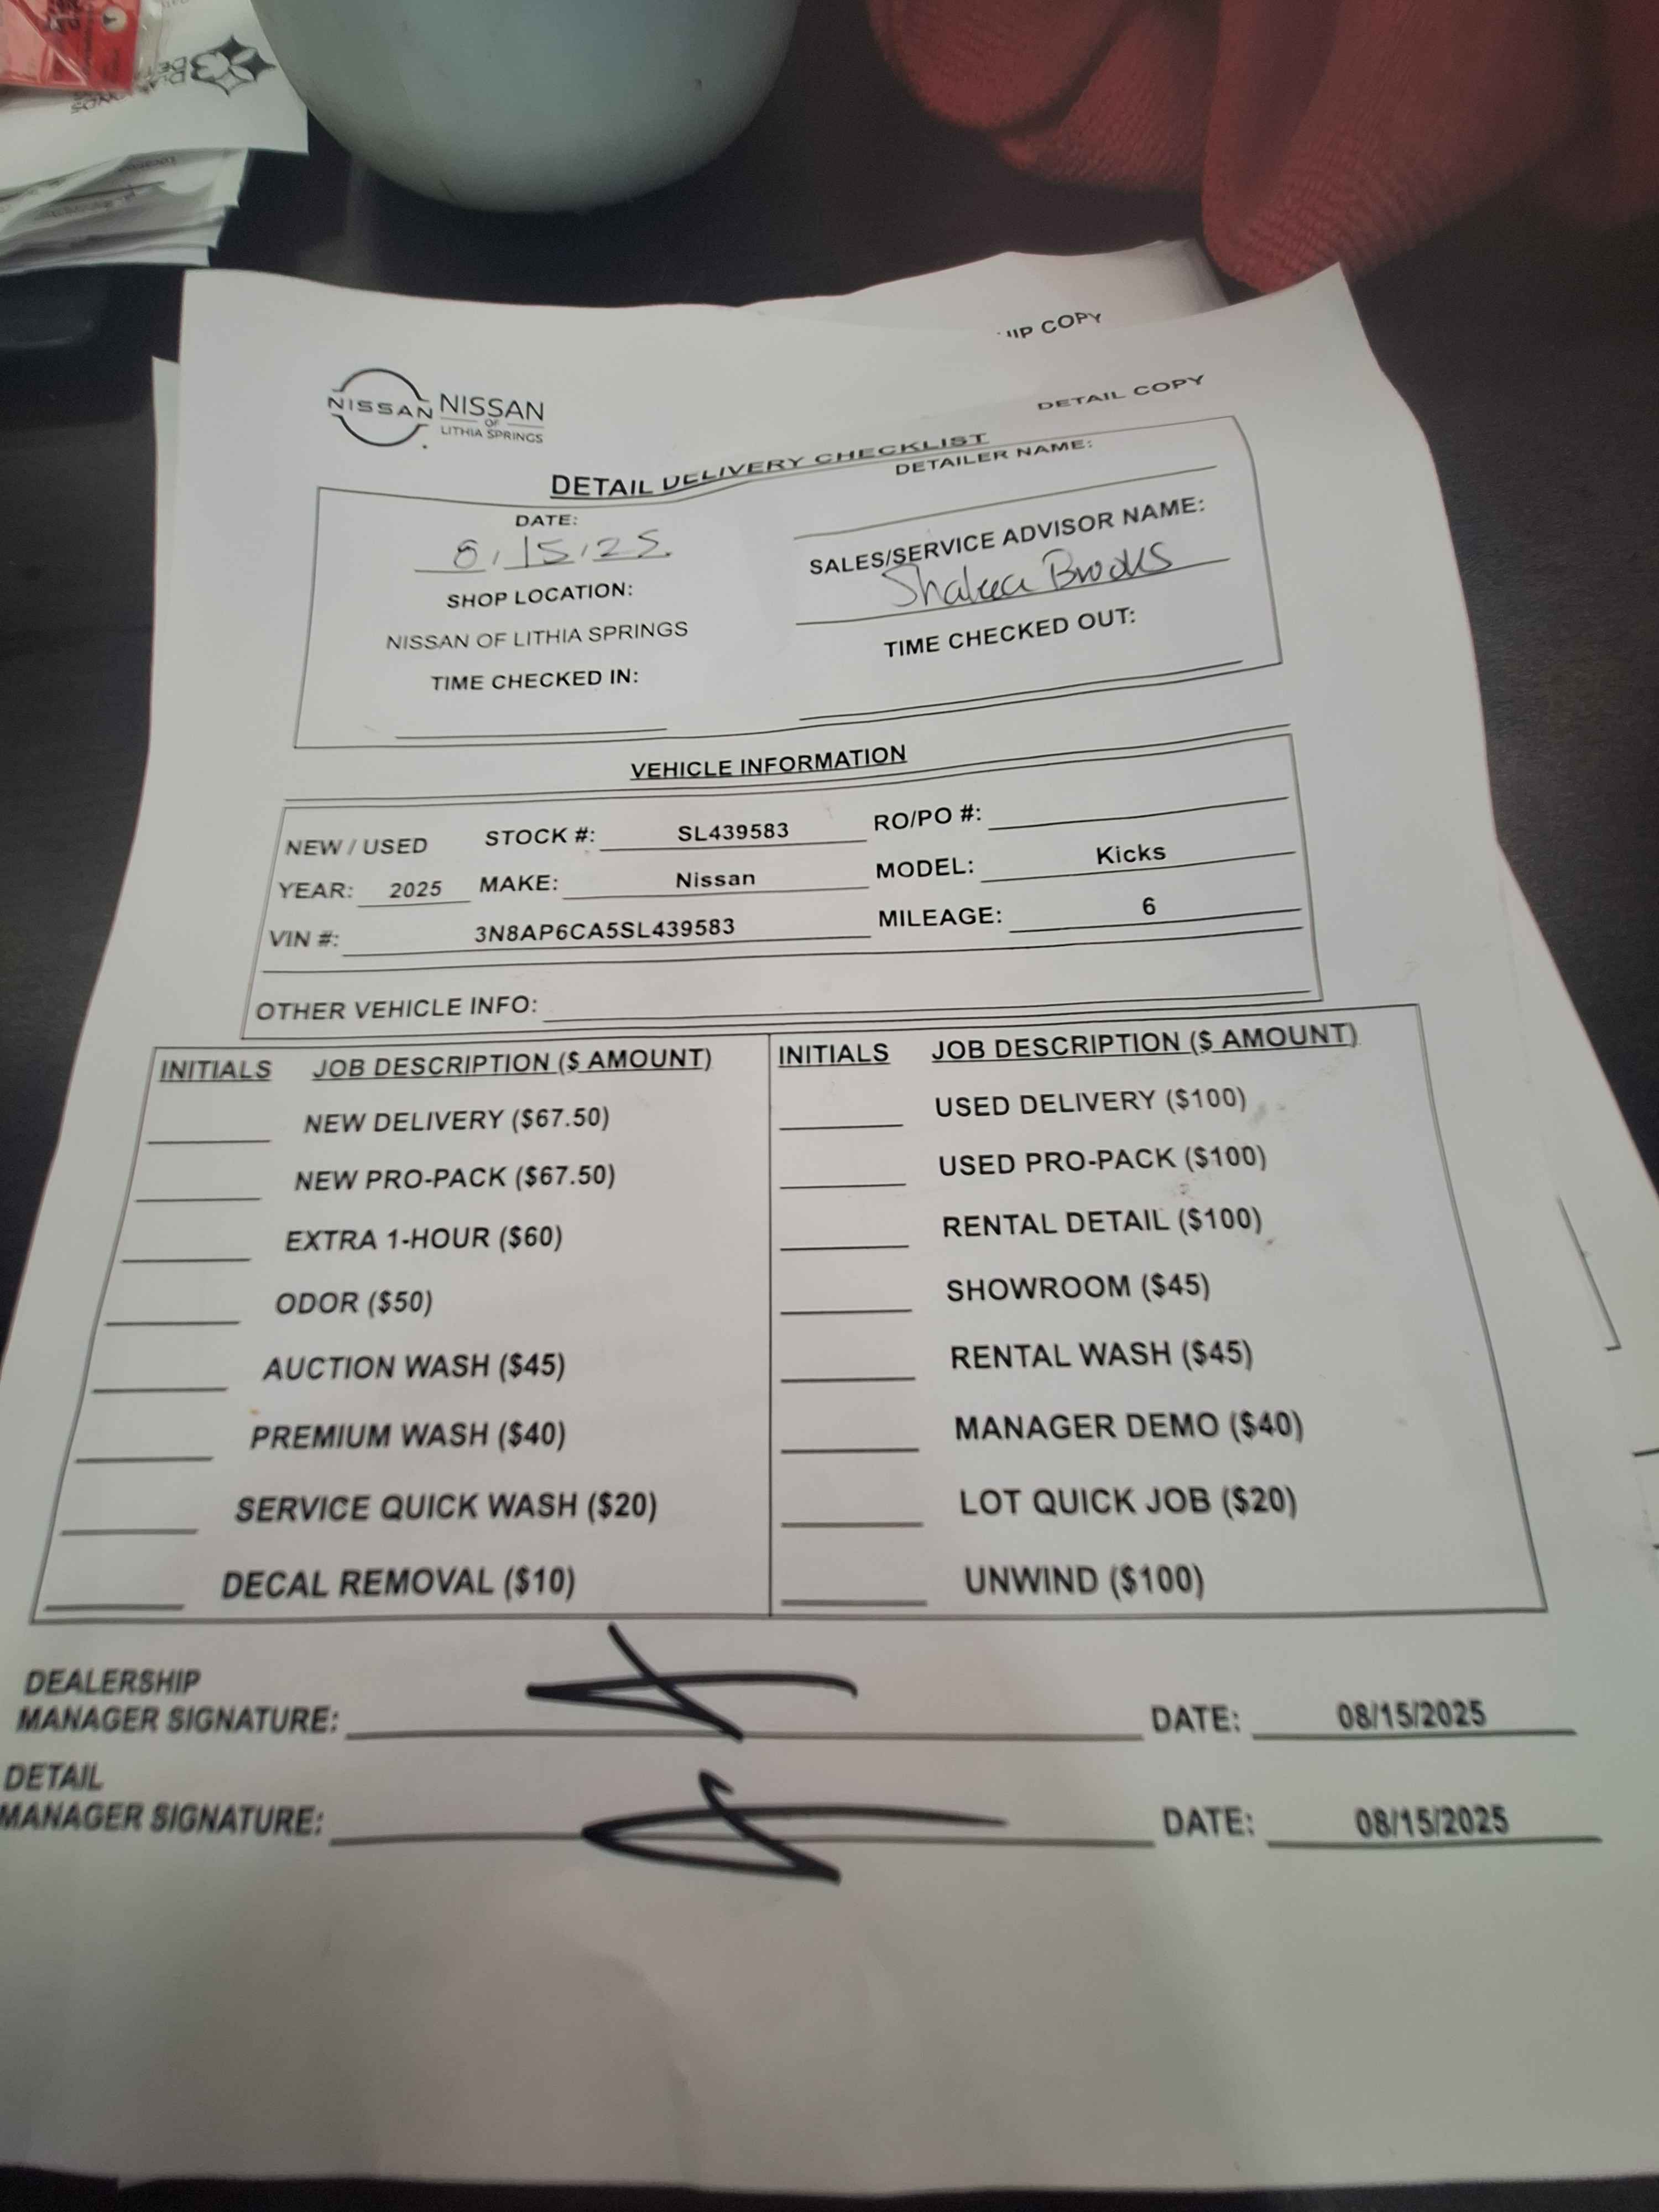 IIP COPY
DETAIL COPY
NISSAN NISSAN
OF
LITHIA SPRINGS
DETAIL DELIVERY CHECKLIST
DATE:
8.15.25
SHOP LOCATION:
NISSAN OF LITHIA SPRINGS
TIME CHECKED IN:
DETAILER NAME:
SALES/SERVICE ADVISOR NAME:
Brooks
TIME CHECKED OUT:
VEHICLE INFORMATION
NEW / USED STOCK #: SL439583 RO/PO #:
YEAR: 2025 MAKE: Nissan MODEL: Kicks
VIN #: 3N8AP6CA5SL439583 MILEAGE: 6
OTHER VEHICLE INFO:
INITIALS JOB DESCRIPTION ($ AMOUNT) INITIALS JOB DESCRIPTION ($ AMOUNT)
NEW DELIVERY ($67.50) USED DELIVERY ($100)
NEW PRO-PACK ($67.50) USED PRO-PACK ($100)
EXTRA 1-HOUR ($60) RENTAL DETAIL ($100)
ODOR ($50) SHOWROOM ($45)
AUCTION WASH ($45) RENTAL WASH ($45)
PREMIUM WASH ($40) MANAGER DEMO ($40)
SERVICE QUICK WASH ($20) LOT QUICK JOB ($20)
DECAL REMOVAL ($10) UNWIND ($100)
DEALERSHIP
MANAGER SIGNATURE: DATE: 08/15/2025
DETAIL
MANAGER SIGNATURE: DATE: 08/15/2025